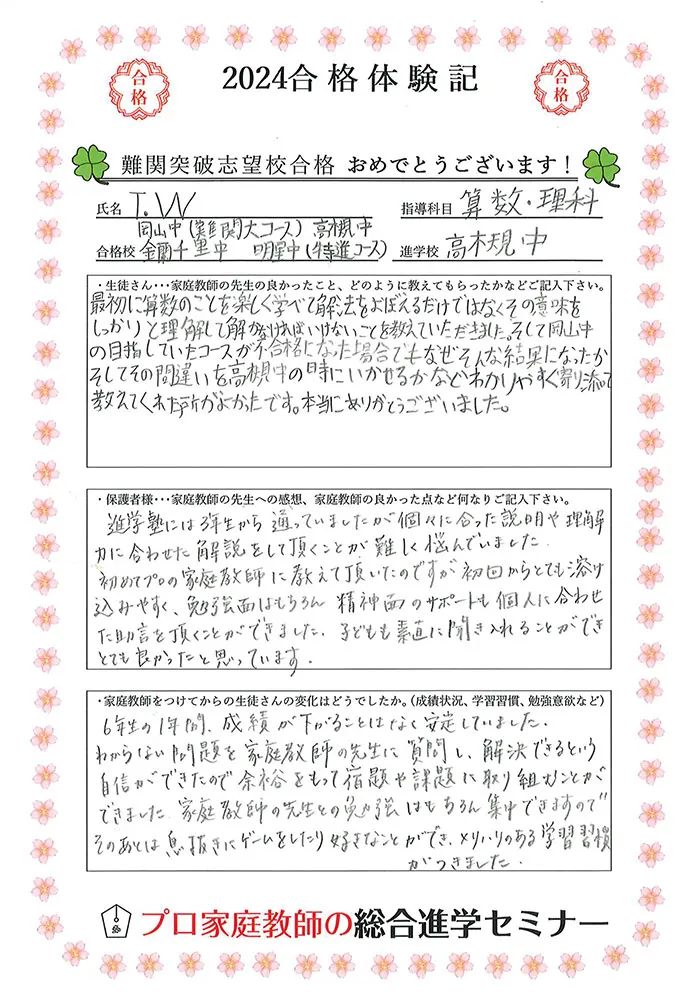 2024合格体験記
合格
合格
難関突破志望校合格 おめでとうございます!
氏名 T.W
指導科目 算数・理科
岡山中(難関大コース) 高槻中
合格校 金蘭千里中 明星中(特進コース)
進学校 高槻中
・生徒さん・・・家庭教師の先生の良かったこと、どのように教えてもらったかなどご記入下さい。
最初に算数のことを楽しく学べて解法をおぼえるだけではなくその意味を
しっかりと理解して解かなければいけないことを教えていただきました。そして岡山中
の目指していたコースが不合格になった場合でもなぜそんな結果になったか
そしてその間違いを高槻中の時にいかせるかなどわかりやすく寄り添って
教えてくれた所がよかったです。本当にありがとうございました。
・保護者様・・・家庭教師の先生への感想、家庭教師の良かった点など何なりご記入下さい。
進学塾には3年生から通っていましたが個々に合った説明や理解
力に合わせた解説をして頂くことが難しく悩んでいました.
初めてプロの家庭教師に教えて頂いたのですが初回からとても溶け
込みやすく、勉強面はもちろん精神面のサポートも個人に合わせ
た助言を頂くことができました. 子どもも素直に聞き入れることができ
とても良かったと思っています.
・家庭教師をつけてからの生徒さんの変化はどうでしたか。(成績状況、学習習慣、勉強意欲など)
6年生の1年間、成績が下がることはなく安定していました.
わからない問題を家庭教師の先生に質問し、解決できるという
自信ができたので余裕をもって宿題や課題に取り組むことが
できました. 家庭教師の先生との勉強はもちろん集中できますので
そのあとは息抜きにゲームをしたり好きなことができ、メリハリのある学習習慣
がつきました.
プロ家庭教師の総合進学セミナー